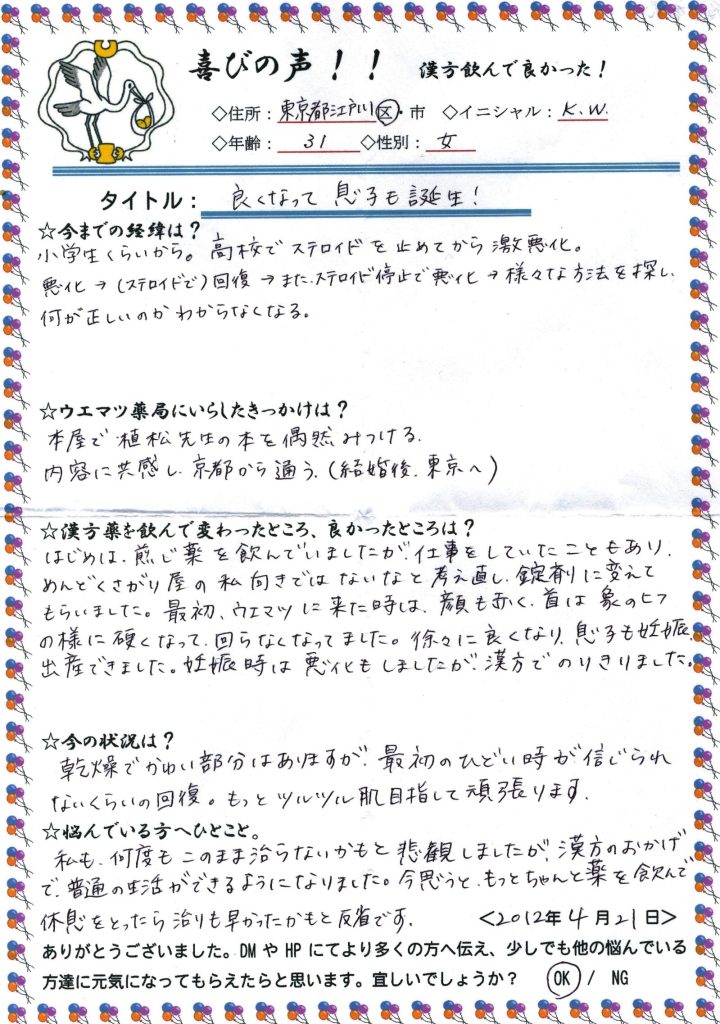 喜びの声！！ 漢方飲んで良かった！
◇住所：東京都江戸川区・市 ◇イニシャル：K.W.
◇年齢：31 ◇性別：女
タイトル：良くなって息子も誕生！
☆今までの経緯は？
小学生くらいから。高校でステロイドを止めてから激悪化。
悪化→（ステロイドで）回復→また、ステロイド停止で悪化→様々な方法を探し、
何が正しいのかわからなくなる。
☆ウエマツ薬局にいらしたきっかけは？
本屋で植松先生の本を偶然みつける。
内容に共感し、京都から通う。（結婚後、東京へ）
☆漢方薬を飲んで変わったところ、良かったところは？
はじめは、煎じ薬を飲んでいましたが、仕事をしていたこともあり、
めんどくさがり屋の私向きではないなと考え直し、錠剤に変えて
もらいました。最初、ウエマツに来た時は、顔も赤く、首は象のヒフ
の様に硬くなって、回らなくなってました。徐々に良くなり、息子も妊娠、
出産できました。妊娠時は悪化もしましたが、漢方でのりきりました。
☆今の状況は？
乾燥でかゆい部分はありますが、最初のひどい時が信じられ
ないくらいの回復。もっとツルツル肌目指して頑張ります。
☆悩んでいる方へひとこと。
私も、何度もこのまま治らないかもと悲観しましたが、漢方のおかげ
で、普通の生活ができるようになりました。今思うと、もっとちゃんと薬を飲んで
休息をとったら治りも早かったかもと反省です。 ＜2012年4月21日＞
ありがとうございました。DMやHPにてより多くの方へ伝え、少しでも他の悩んでいる
方達に元気になってもらえたらと思います。宜しいでしょうか？ OK / NG